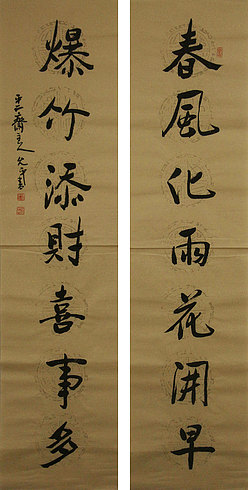 春風化雨花開早
爆竹添財喜事多